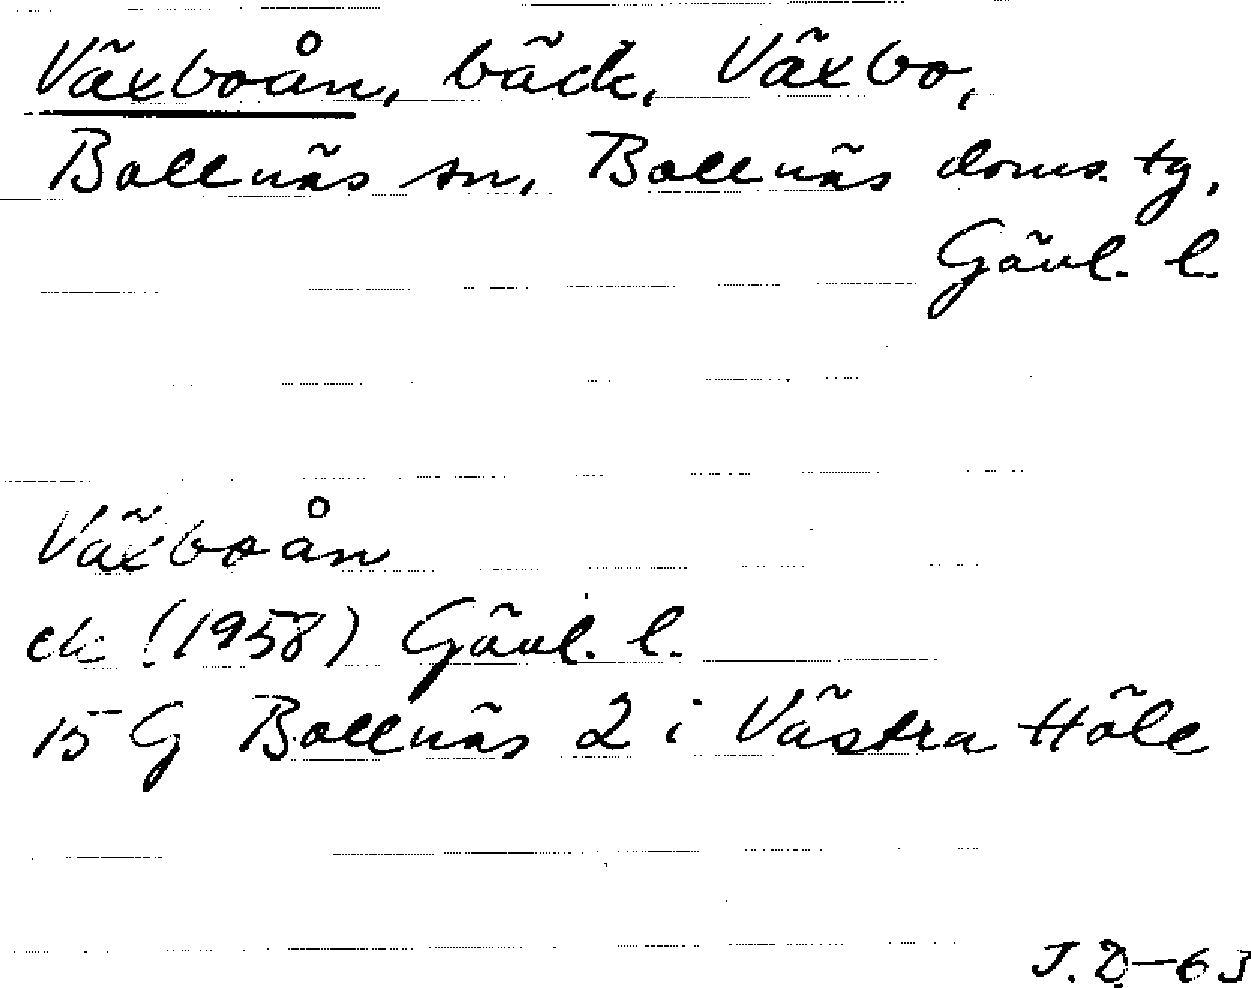 Växboån, bäck, Växbo,
Bollnäs sn, Bollnäs doms. tg,
Gävl. l.
Växboån
ek (1958) Gävl. l.
15 G Bollnäs 2 i Västra Höle
J. D-63